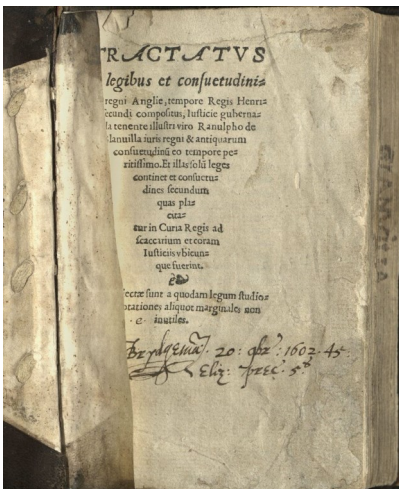 TRACTATVS
legibus et consuetudini⸗
regni Anglie, tempore Regis Henri⸗
ecundi compositus, Iusticie guberna⸗
la tenente illustri viro Ranulpho de
lanuilla iuris regni & antiquarum
consuetudinū eo tempore pe⸗
ritissimo. Et illas solū leges
continet et consuetu⸗
dines secundum
quas pla⸗
cita⸗
tur in Curia Regis ad
scaccarium et coram
Iusticiis vbicun⸗
que fuerint.
ectæ sunt a quodam legum studio⸗
otationes aliquot marginales non
inutiles.
20: 1602. 45
Eliz: prec: 5s